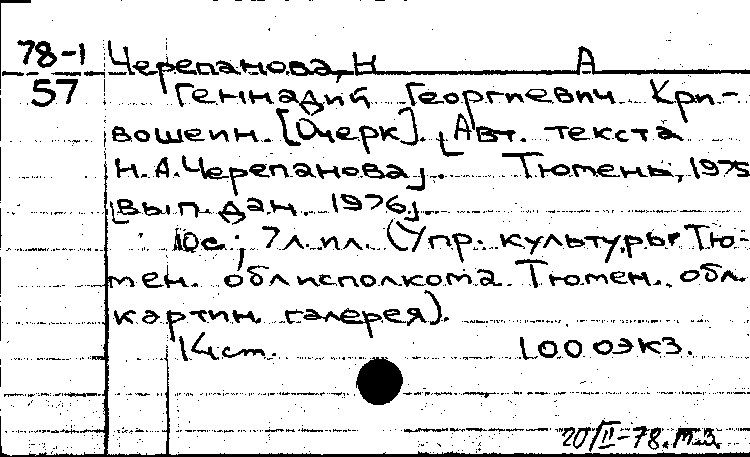 78-1 Черепанова, Н А
57 Геннадий Георгиевич Кри-
вошеин. [Очерк]. [Авт. текста
Н.А.Черепанова]. Тюмень, 1975
[вып. дан. 1976].
10с; 7 л. ил. (Упр. культуры Тю-
мен. облисполкома Тюмен. обл.
картин. галерея).
14 cm. 1000экз.
20/II-78. т.з.